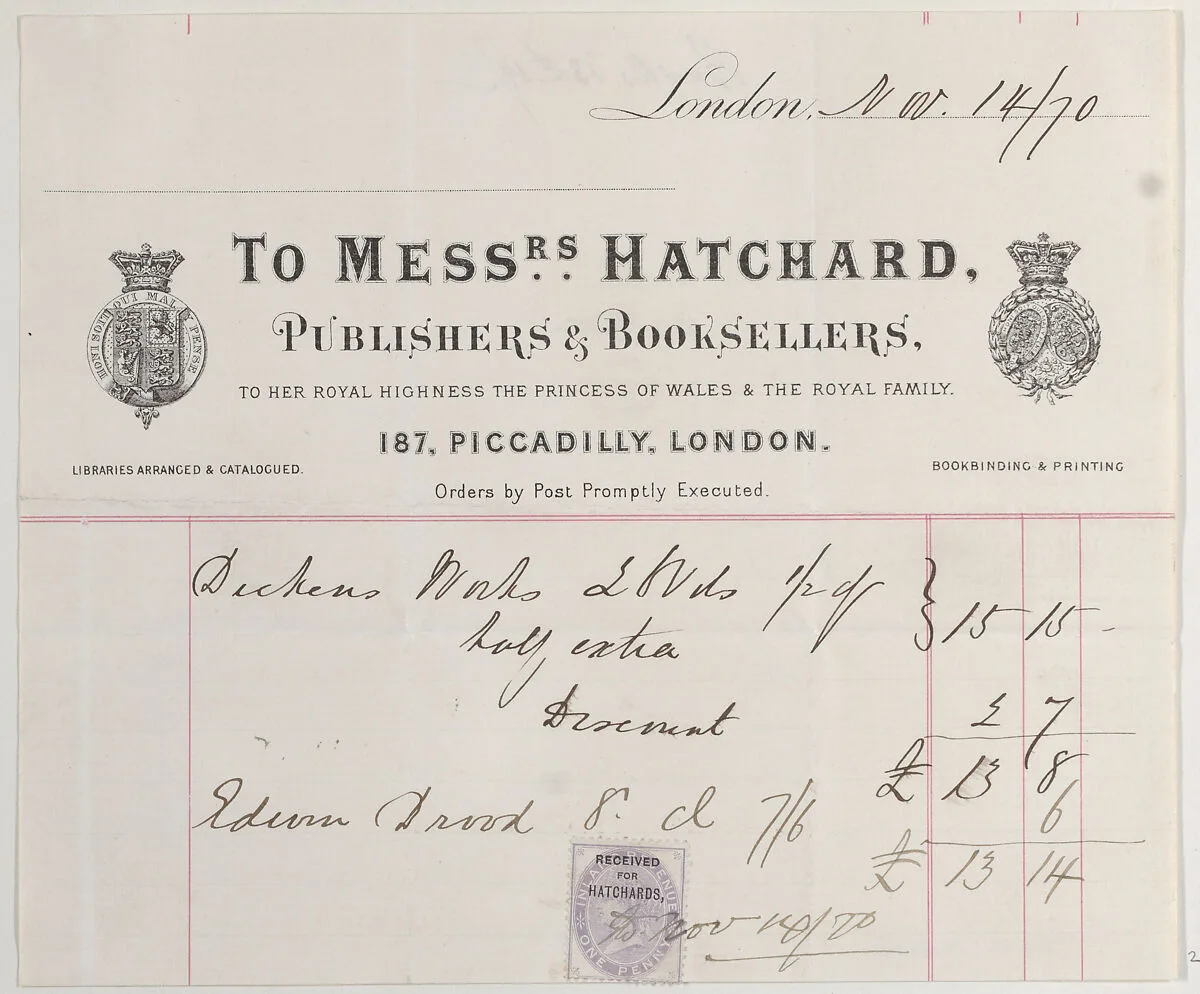 London, Nov. 14/70
To Messrs Hatchard,
Publishers & Booksellers,
TO HER ROYAL HIGHNESS THE PRINCESS OF WALES & THE ROYAL FAMILY.
187, PICCADILLY, LONDON.
LIBRARIES ARRANGED & CATALOGUED.
BOOKBINDING & PRINTING
Orders by Post Promptly Executed.
HONI SOIT QUI MAL PENSE
Dickens Works Vols 1/2 cf } 15 15 -
half extra
Discount 2 7
£ 13 8
Edwin Drood 8o. cl 7/6 6
£ 13 14
INLAND REVENUE
RECEIVED
FOR
HATCHARDS,
Nov 14/70
ONE PENNY
2